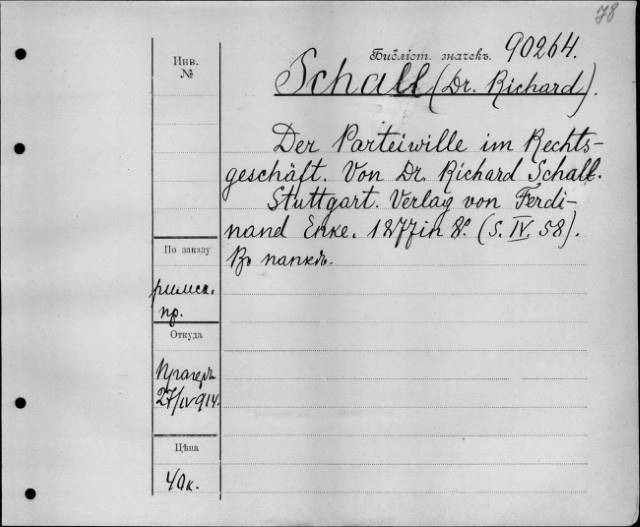 78
Инв.
№
Библіот. значекъ. 90264.
Schall (Dr. Richard).
Der Parteiwille im Rechts-
geschäft. Von Dr. Richard Schall.
Stuttgart. Verlag von Ferdi-
nand Enke. 1877 in 8º. (S. IV. 58).
Въ папкѣ.
По заказу
римск.
пр.
Откуда
Прагеръ
27/IV 914.
Цѣна
40 к.